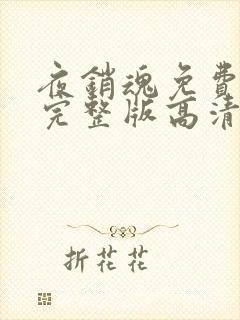 夜銷魂免費
完整版高清
折花花